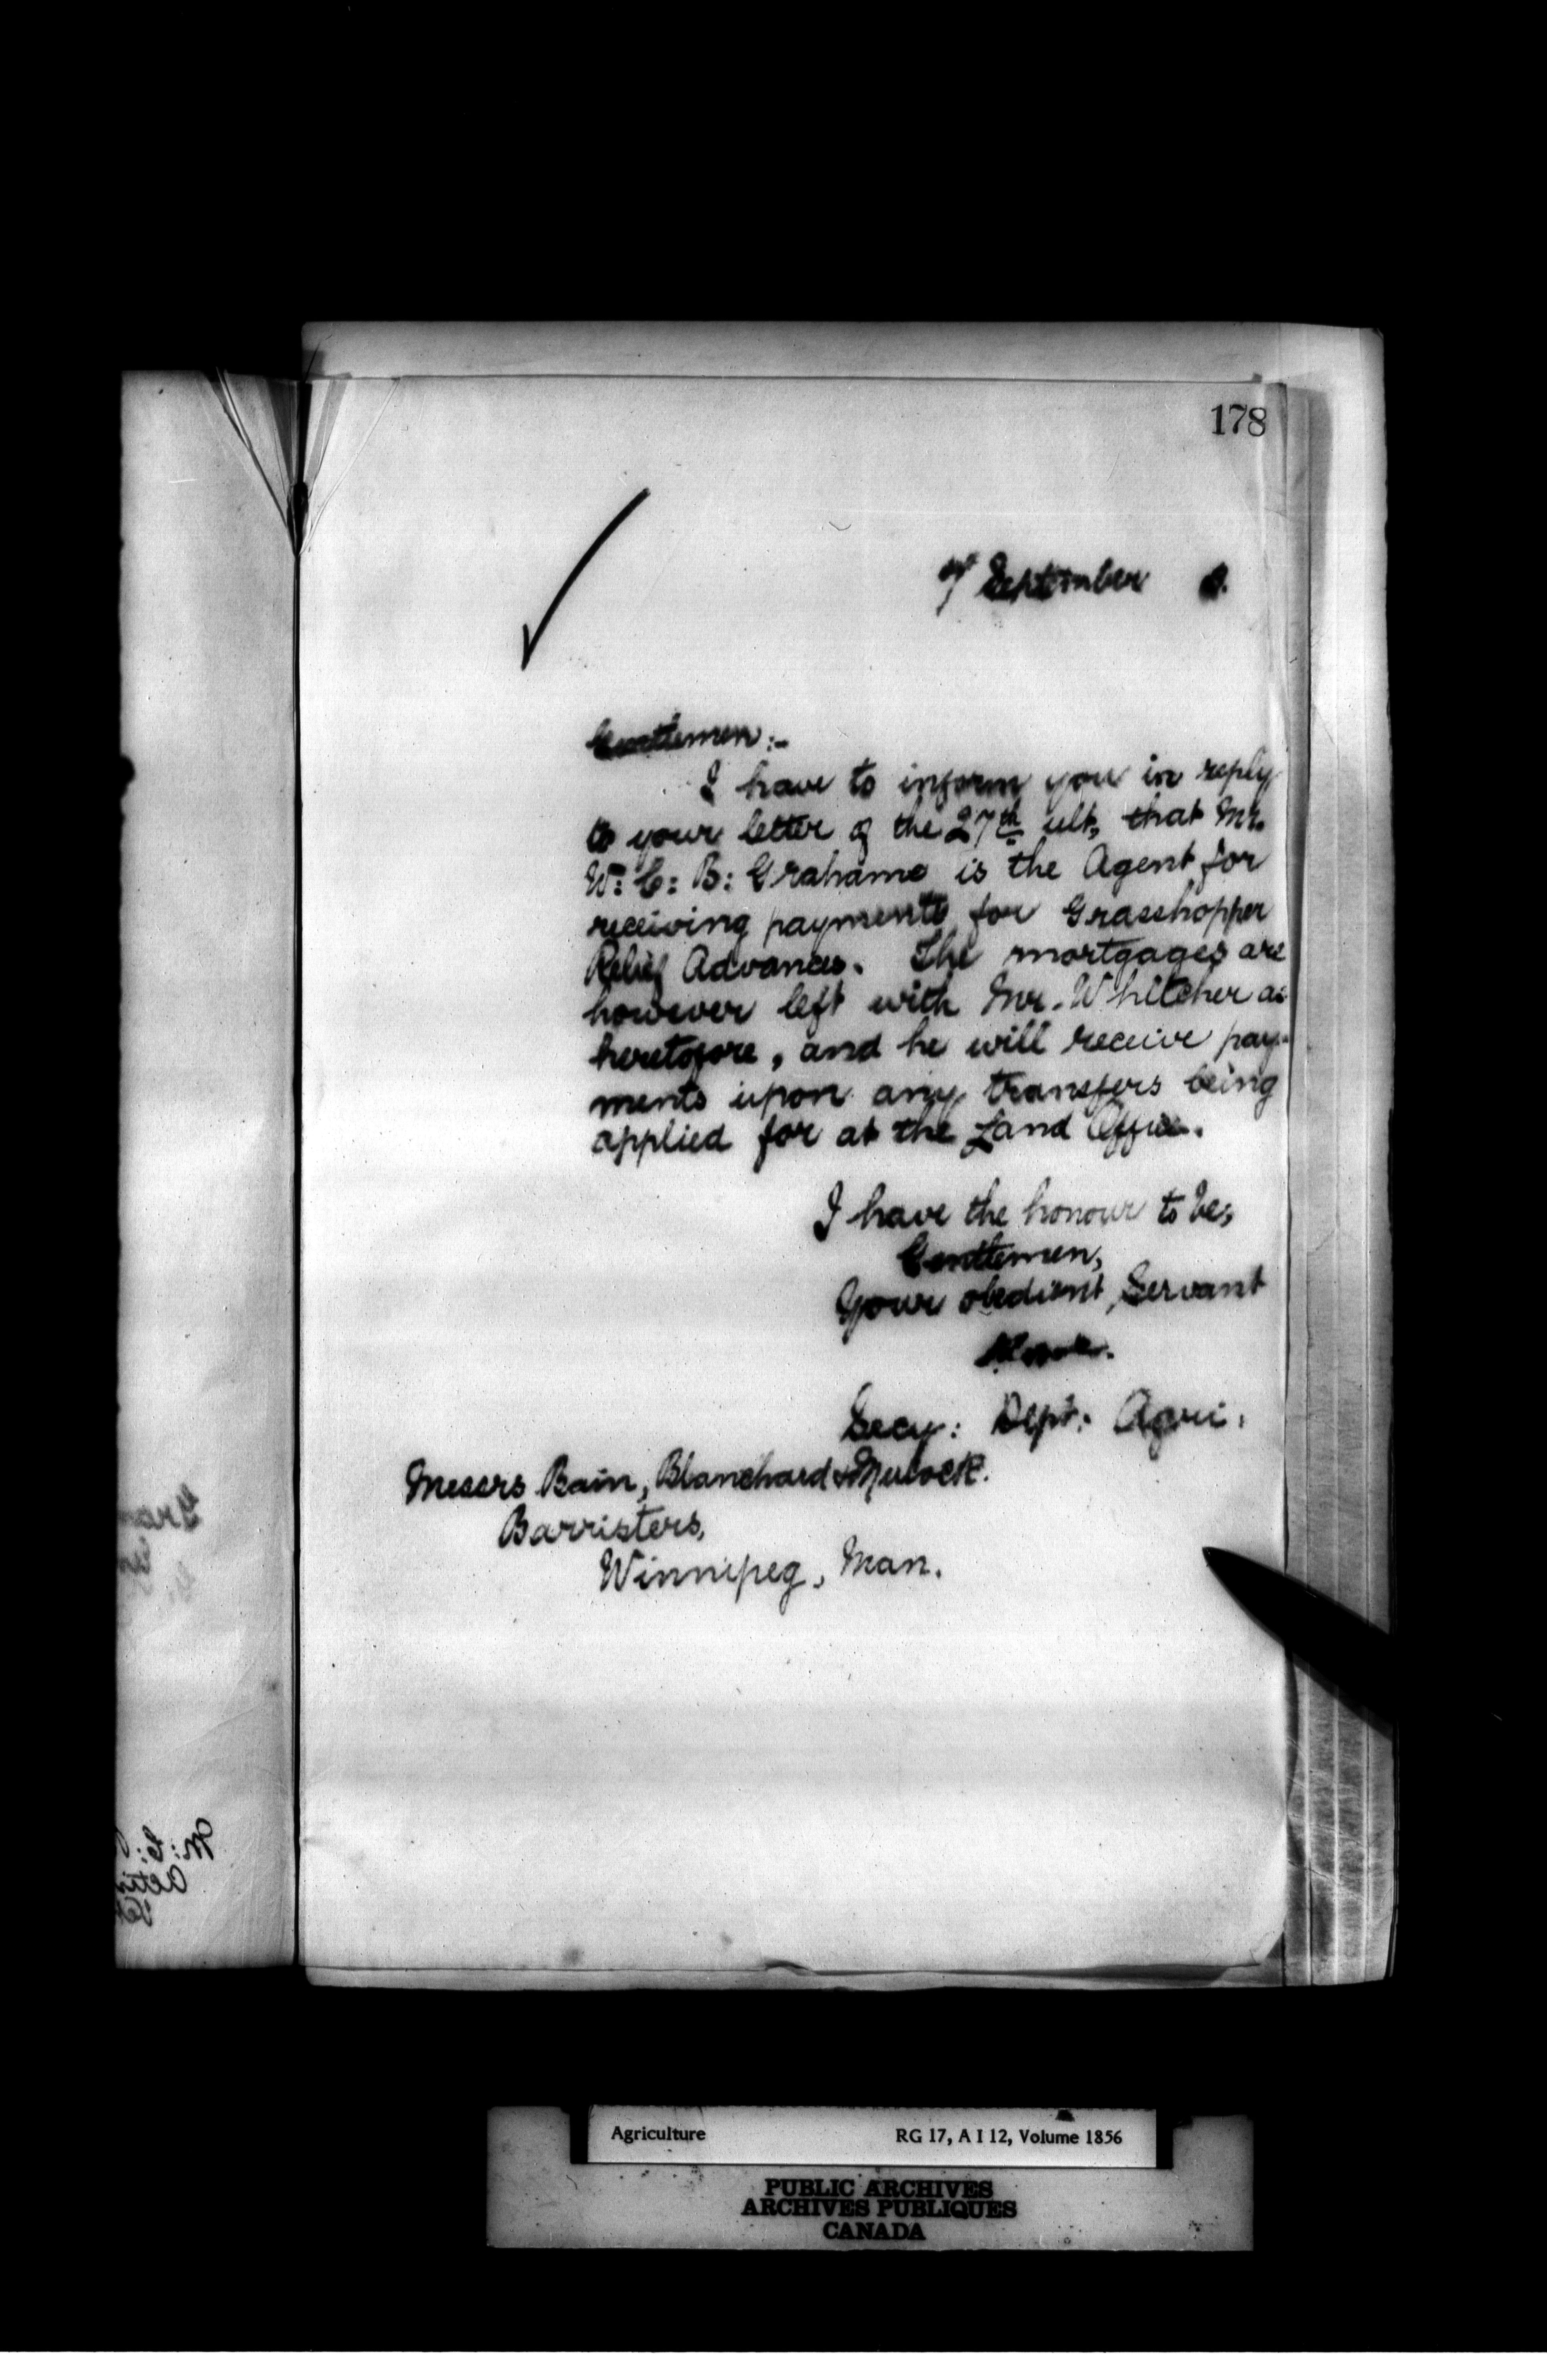 178
September
Gentlemen:-
I have to inform you in reply
to your letter of the 27th ult, that Mr.
W: C: B: Grahame is the Agent for
receiving payments for Grasshopper
Relief Advances. The mortgages are
however left with Mr. Whitcher as
heretofore, and he will receive pay-
ments upon any transfers being
applied for at the Land Office.
I have the honour to be,
Gentlemen,
Your obedient Servant
Secy: Dept: Agri:
Messrs Bain, Blanchard & Mulock.
Barristers,
Winnipeg, Man.
Agriculture RG 17, A I 12, Volume 1856
PUBLIC ARCHIVES
ARCHIVES PUBLIQUES
CANADA